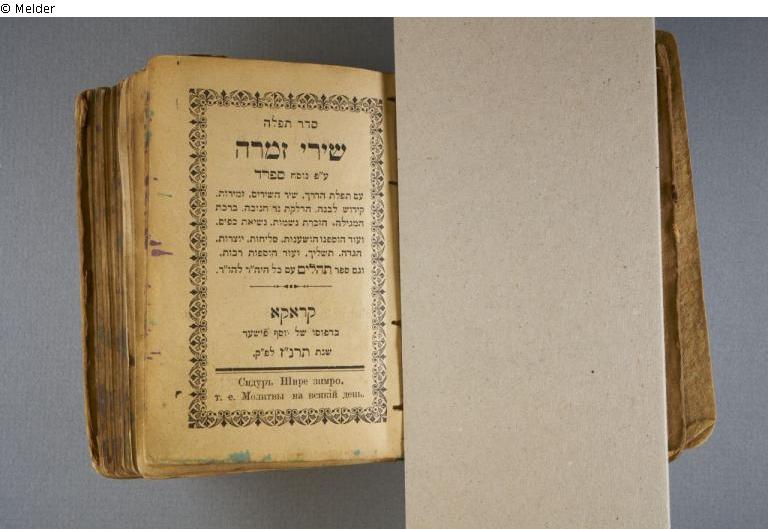 © Melder
סדר תפלה
שירי זמרה
ע״פ נוסח ספרד
עם תפלת הדרך, שיר השירים, זמירות,
קידוש לבנה, הדלקת נר חנוכה, ברכת
המגילה, הזכרת נשמות, נשיאת כפים,
ועוד הוספנו הושענות, סליחות, יוצרות,
הגדה, תשליך, ועוד הוספות רבות,
וגם ספר תהלים עם כל היה״ר להז״ר.
קראקא
בדפוסו של יוסף פישער
שנת תרנ״ז לפ״ק.
Сидуръ Шире зимро,
т. е. Молитвы на всякій день.